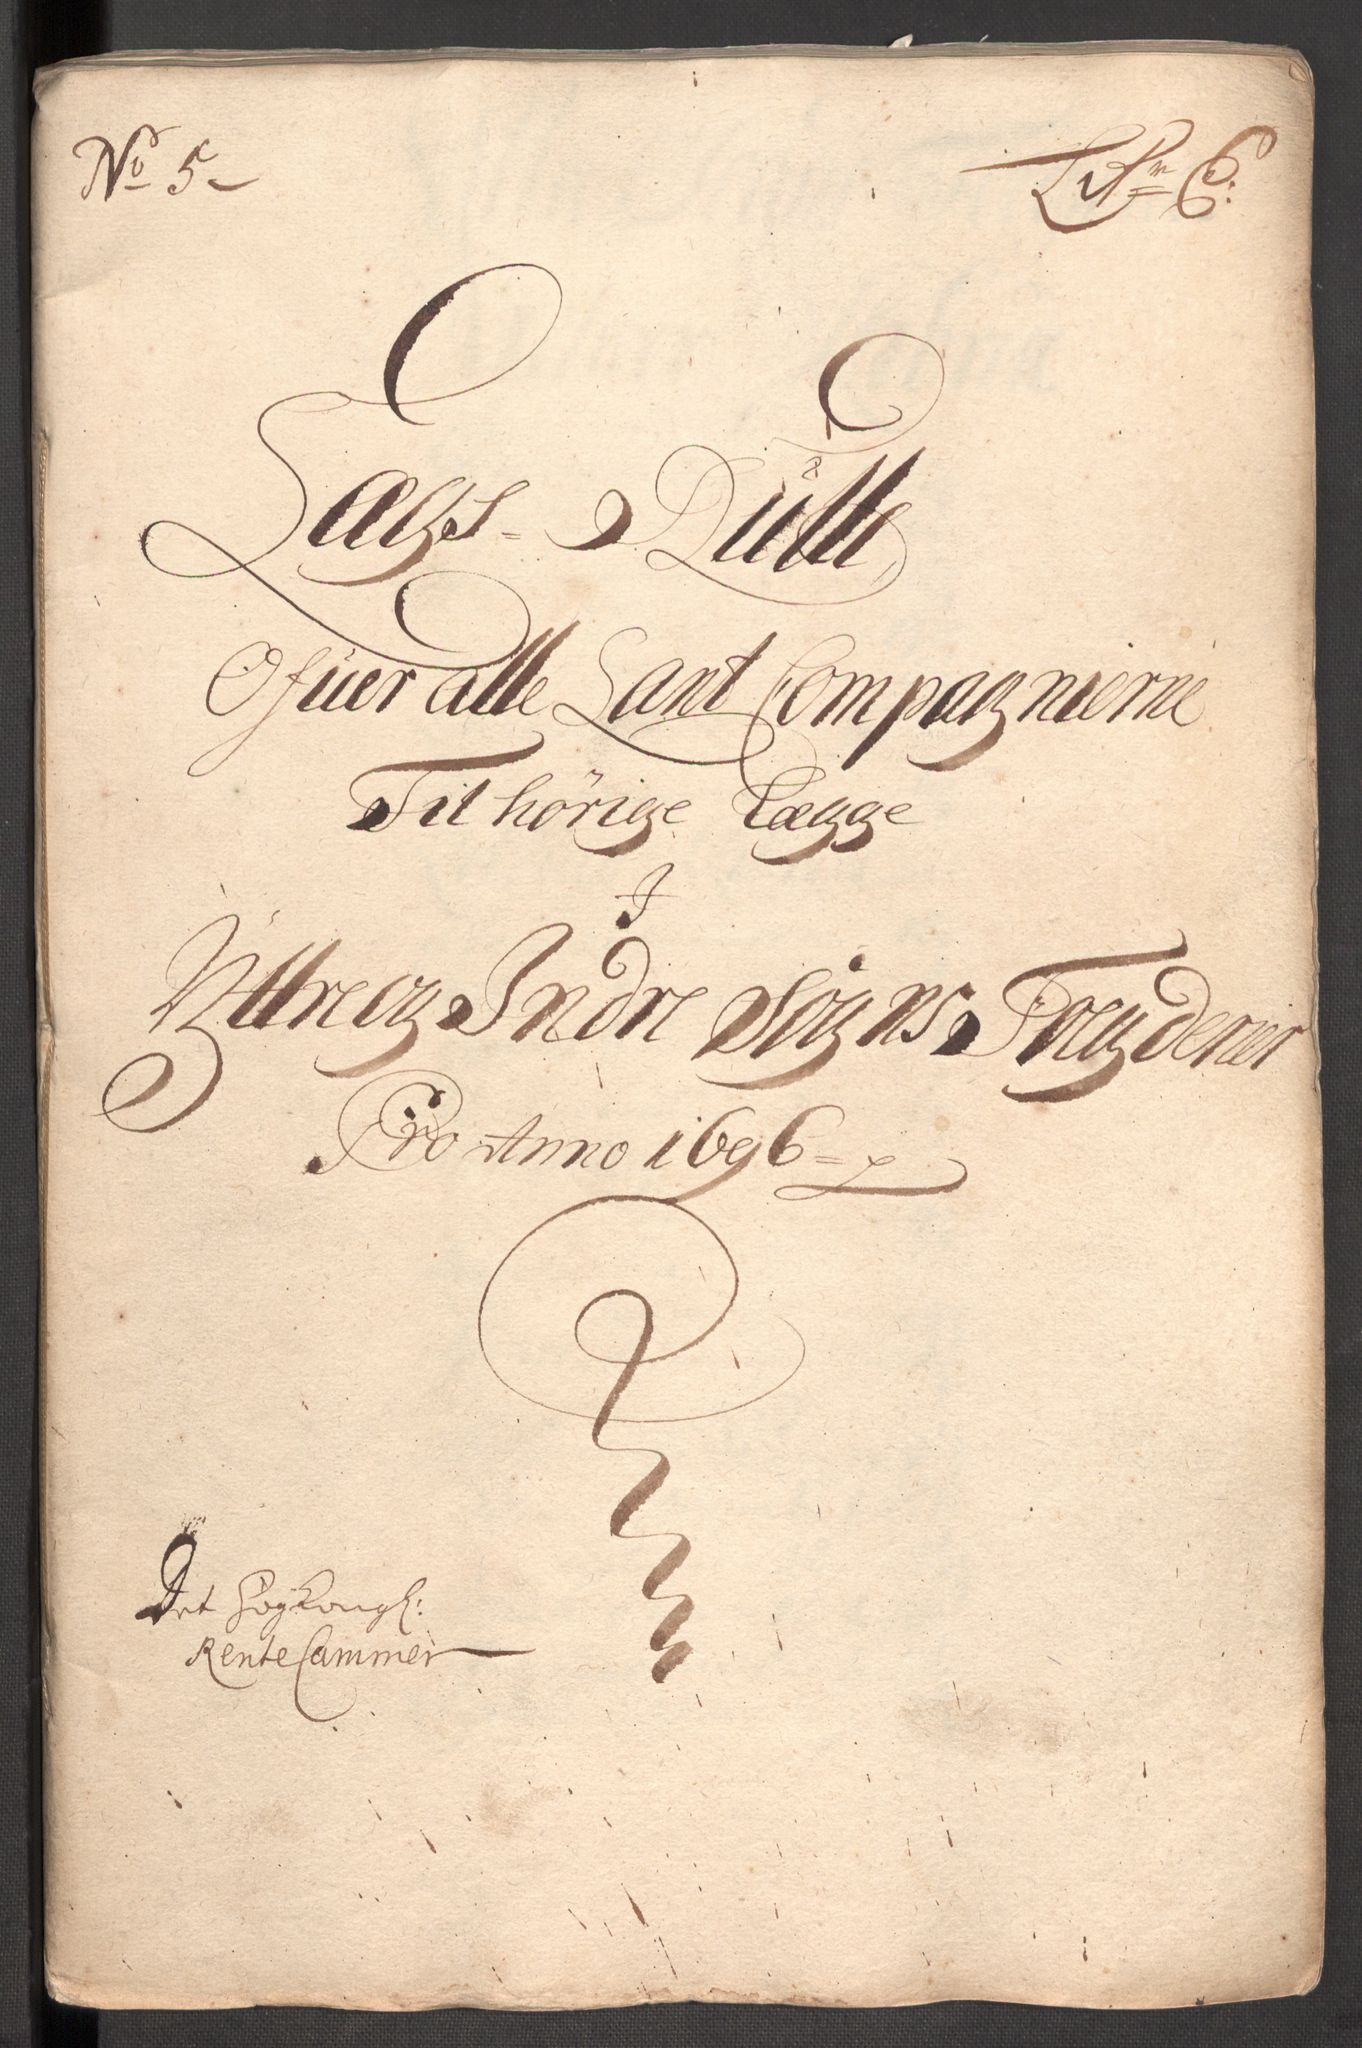 No 5
Litr C:
Lægs-Rulle
Ofuer alle Lant Compagnierne
Tilhörige Lægge
I
Yttre og Indre Sogns Fogderier
Pro Anno 1696
Det höykongl:
RenteCammer